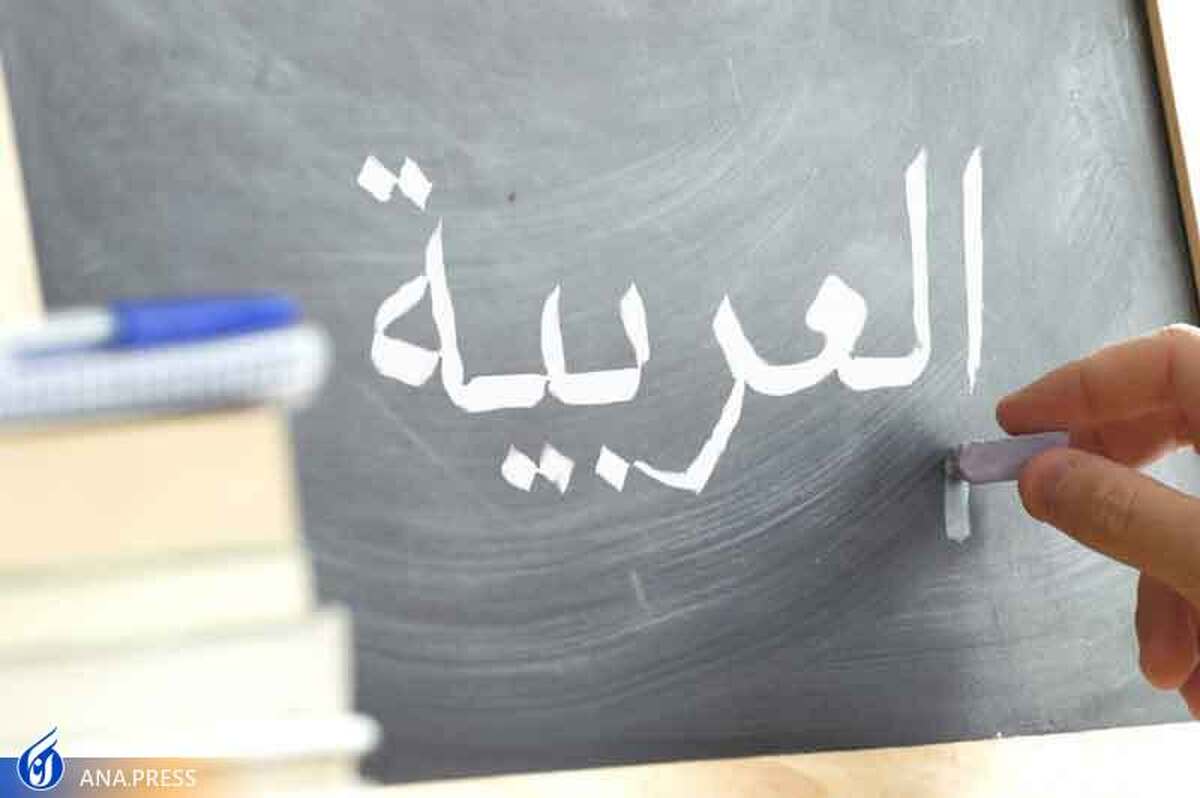 العربية
ANA.PRESS